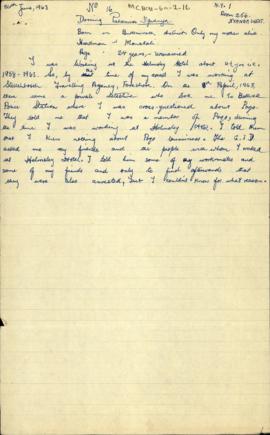 30th June, 1963 No 16 MCB04-6n-2-16 N.Y. 1
Room 256.
Born in Queenstown district. Only my mother alive
Headman is
Age 24 years, - unmarried
I was working at the Holmsley Hotel about
1958-1961. So, by the time of my arrest I was working at
Travelling Agency, On 8th April, 1963,
there came a private detective who took me to
Police Station where I was cross-questioned about Poqo.
They told me that I was a member of Poqo, during
the time I was working at Holmsley Hotel. I told them
that I knew nothing about Poqo business. The C.I.D.
asked me my friends and the people with whom I worked
at Holmsley Hotel. I told him some of my workmates and
some of my friends and only to find afterwards that
they were also arrested, but I couldn't know for what reason.